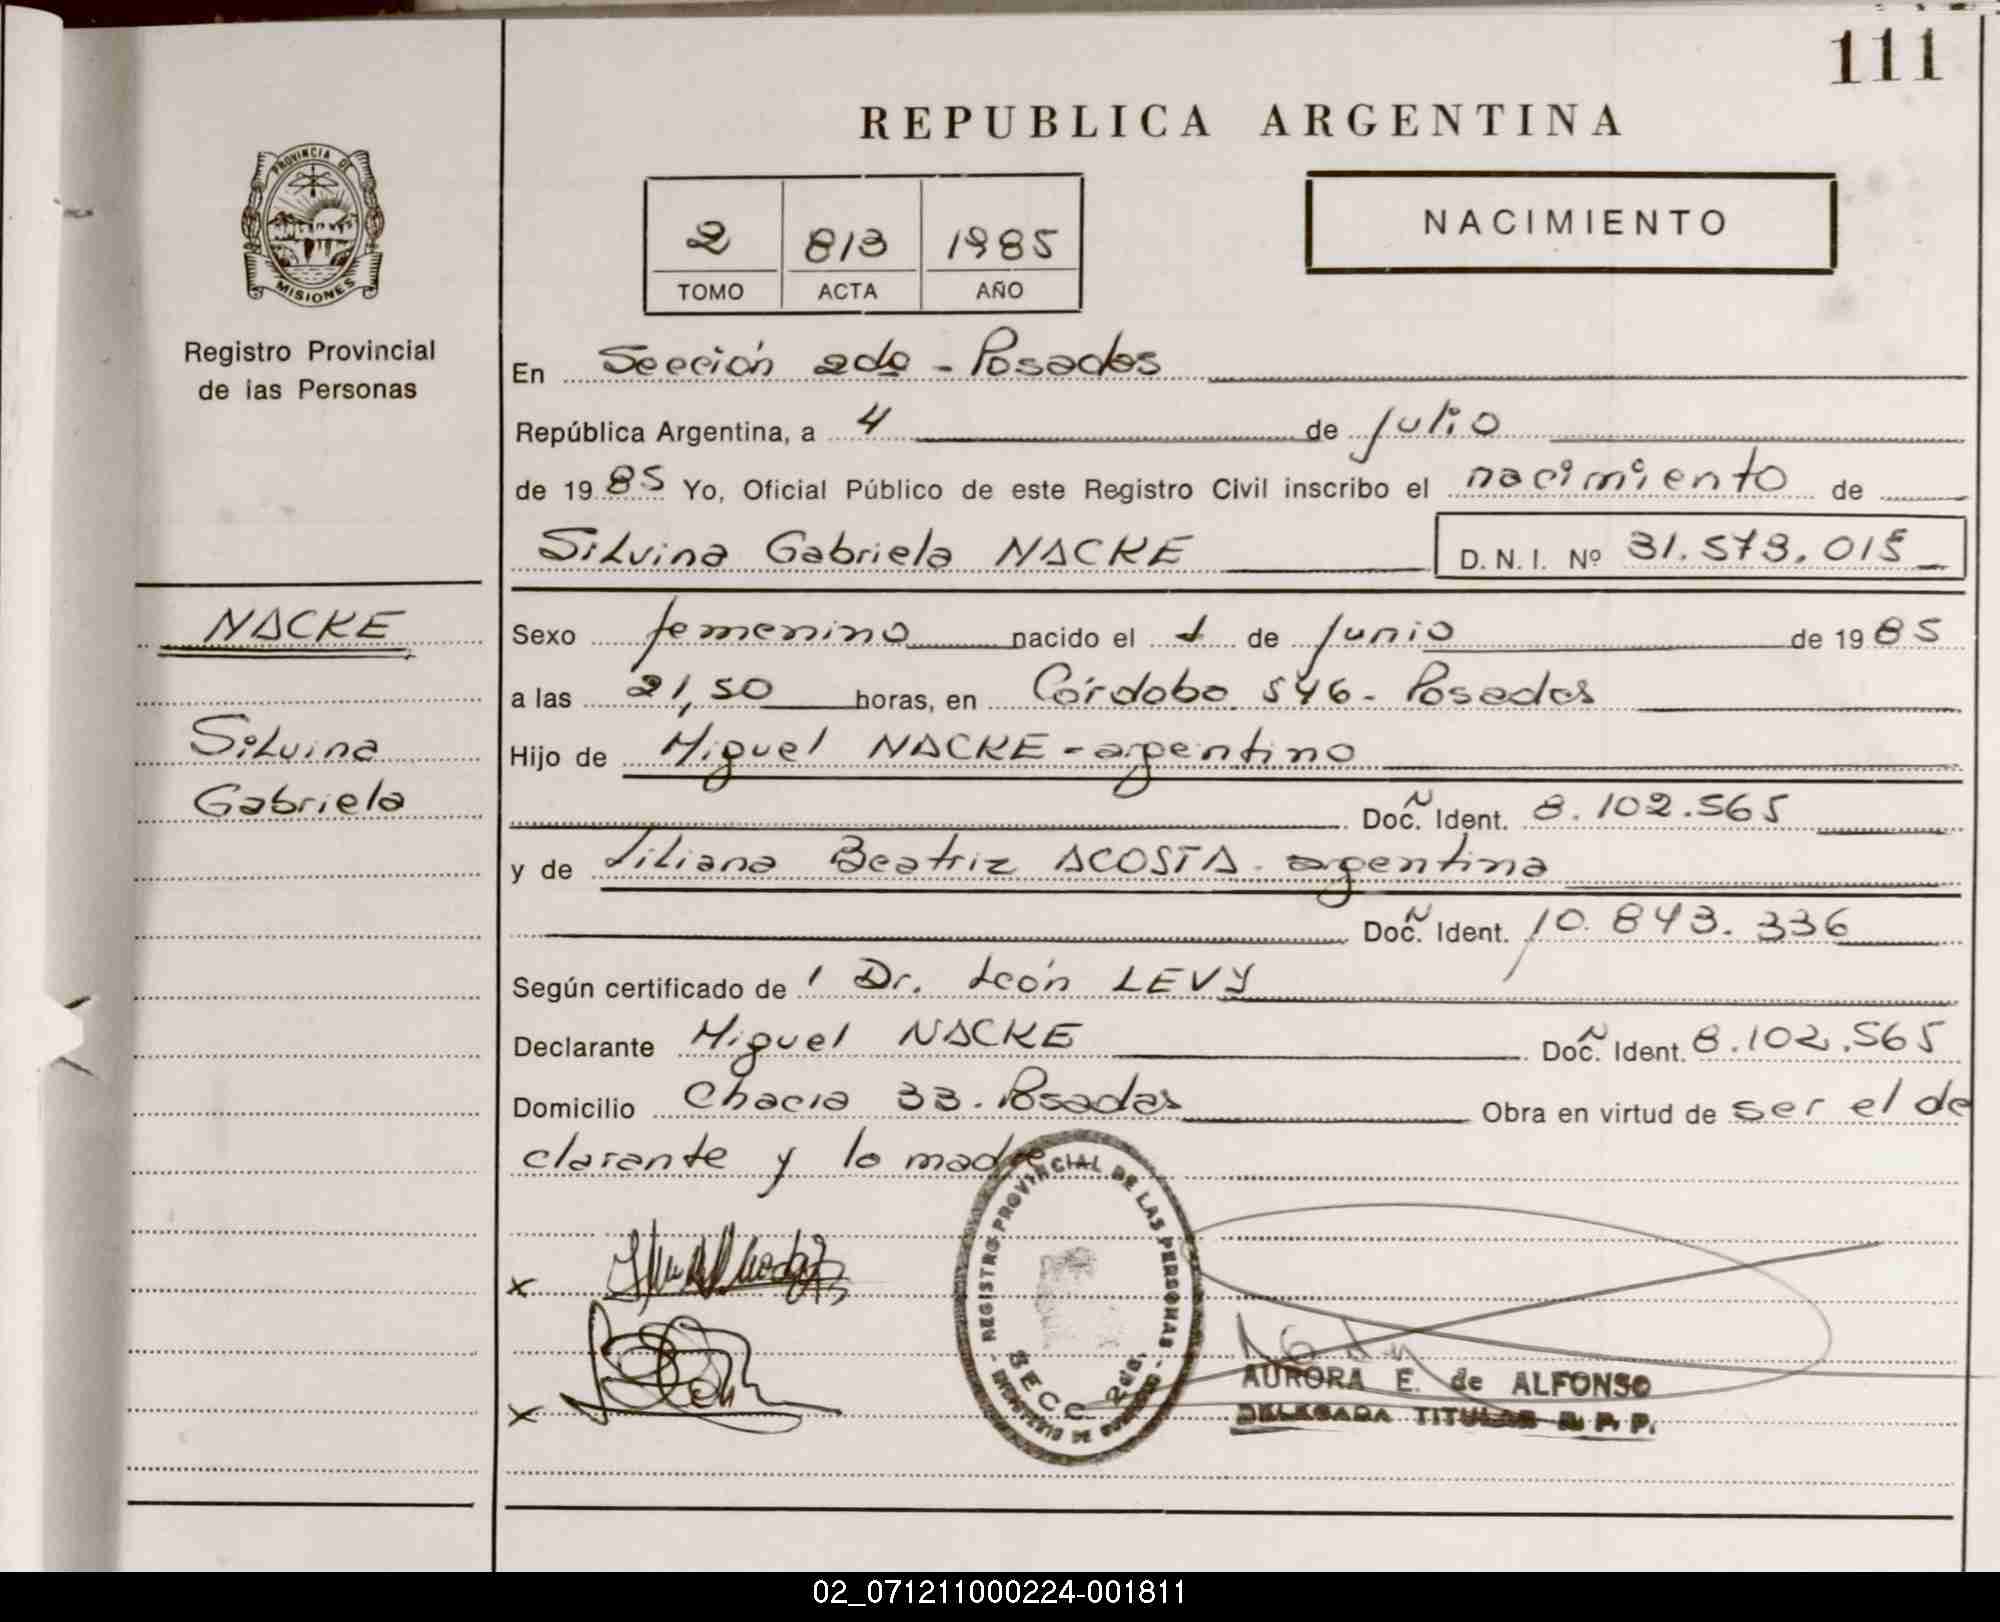 111
REPUBLICA ARGENTINA
PROVINCIA DE
MISIONES
Registro Provincial
de las Personas
2 813 1985
TOMO ACTA AÑO
NACIMIENTO
En Sección 2da - Posadas
República Argentina, a 4 de julio
de 1985 Yo, Oficial Público de este Registro Civil inscribo el nacimiento de
Silvina Gabriela NACKE D.N.I. Nº 31.573.015
NACKE
Silvina
Gabriela
Sexo femenino nacido el 1 de junio de 1985
a las 21,50 horas, en Córdoba 546 - Posadas
Hijo de Miguel NACKE - argentino
Doc. Ident. 8.102.565
y de Liliana Beatriz ACOSTA - argentina
Doc. Ident. 10.843.336
Según certificado de l Dr. León LEVY
Declarante Miguel NACKE Doc. Ident. 8.102.565
Domicilio Chacra 33 - Posadas Obra en virtud de ser el de
clarante y la madre
REGISTRO PROVINCIAL DE LAS PERSONAS
SECC. 2da.
x
x
AURORA E. de ALFONSO
DELEGADA TITULAR R. P. P.
02_071211000224-001811